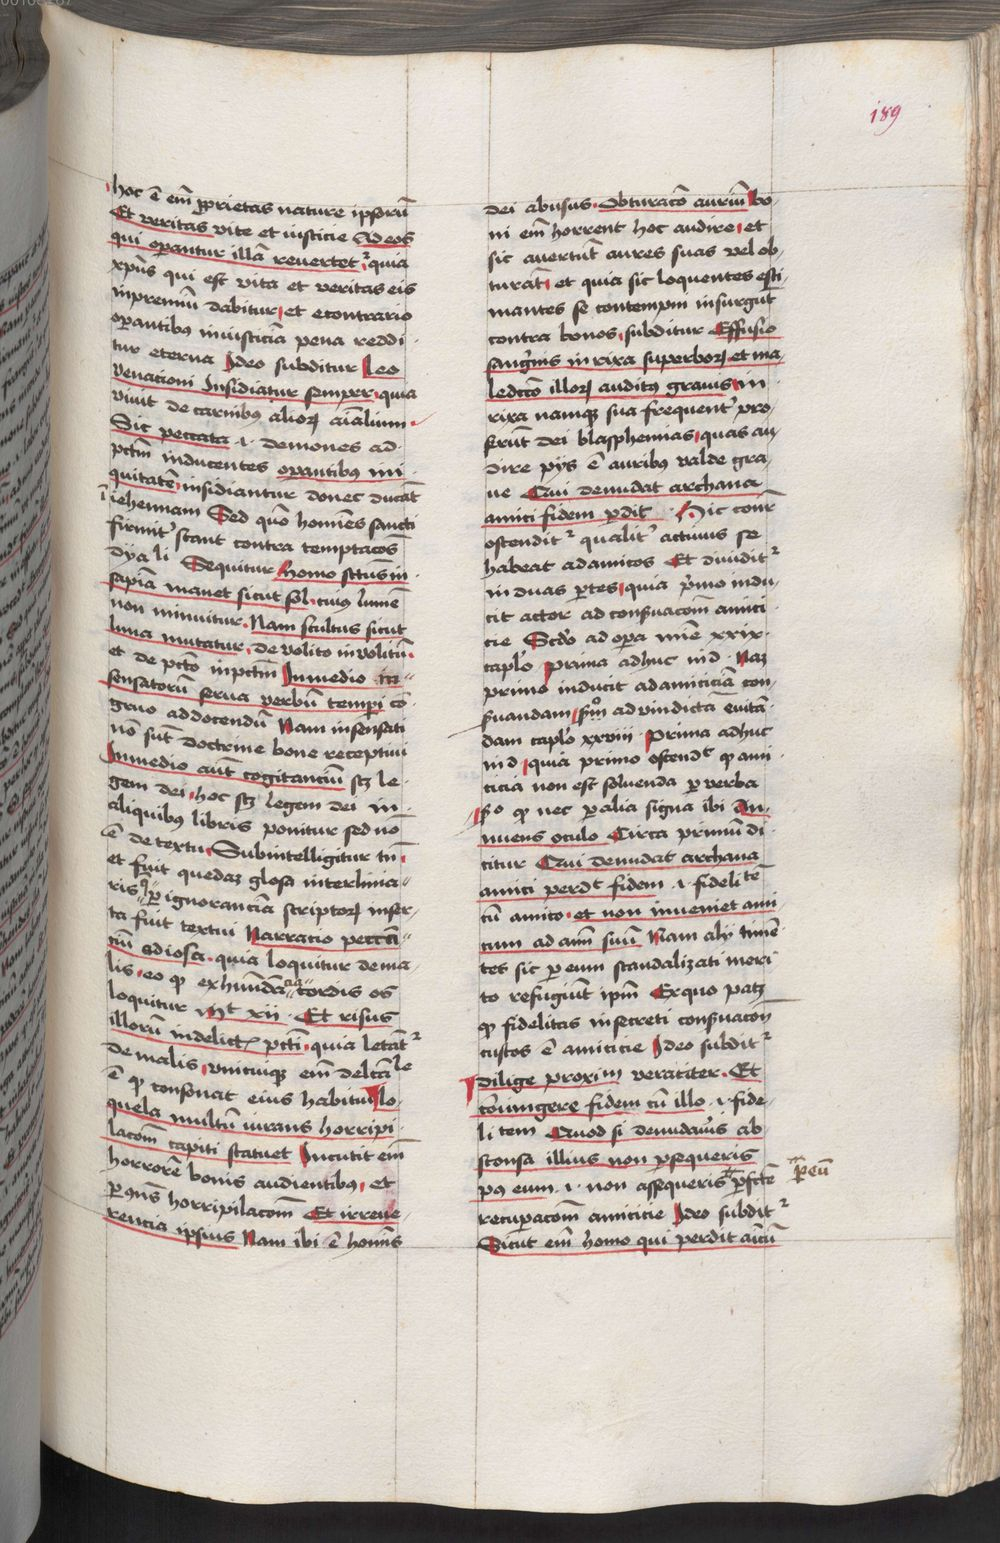 189
hoc ē em̄ ꝓprietas nature ipsorū
Et veritas vite et iusticie Ad eos
qui oꝑantur illā revertetᷣ quia
xp̄us qui est vita et veritas eis
in premiū dabitur et econtrario
oꝑantibꝰ iniusticiā pena reddi
tur eterna Ideo subditur Leo
venacioni Insidiatur semper quia
vivit de carnibꝰ alioꝝ aīalium
Sic peccata .i. demones ad
pctm̄ inducentes oꝑantibus ini
quitatē insidiantur donec ducāt
ī iehennam Sed quō homīes sancti
firmitᷣ stant contra temptacōs
dyaboli Sequitur Homo sctūs in
sapīa manet sicut sol cuiꝰ lumē
non minuitur Nam stultus sicut
luna mutatur de volito in volitū
et de pcto in pctm̄ In medio in
sensatorū serva verbū tempī cō
gruo ad docendū Nam insensati
nō sūt doctrine bone receptivi
In medio aūt cogitanciū scꝫ le
gem dei hoc scꝫ legem dei in
aliquibꝰ libris ponitur sed nō
ē de textu Subintelligitur tn̄
et fuit quedaꝫ glosa interlinia
ris ꝑ ignoranciā scriptoꝝ inser
ta fuit textui Narratio peccan
ciū odiosa quia loquitur de ma
lis eo ꝙ ex hūndācia cordis os
loquitur Mt xii Et risus
illorū in delictꝭ pcti quia letātᷣ
de malis unicuiqꝫ em̄ delctāle
ē ꝙ consonat eius habitui Lo
quela multū iurans horripi
lacōm capiti statuet Incutit em̄
horrorē bonis audientibꝰ et
ꝑ ꝯns̄ horripilacōm Et irreve
rencia ipsius Nam ibi ē homīs
dei abusus obturacō auriū bo
ni em̄ horrent hoc audire et
sic avertūt aures suas vel ob
turāt et quia sic loquentes esti
mantes se contempni insurgūt
contra bonos subditur Effusio
sangnīs in rixa superboꝝ et ma
ledctō illoꝝ auditꝰ gravis in
rixa namqꝫ sua frequentᷣ pro
ferūt dei blasphemias quas au
dire pijs ē auribus valde gra
ve Qui denudat archana
amici fidem ꝑdit Hic con̄r
ostenditᷣ qualitᷣ activus se
habeat ad amicos Et dividitᷣ
in duas ꝑtes quia p̄mo indu
cit actor ad conẜvacōm amici
cie Scdo ad oꝑa mīe xxix
capl̄o prima adhuc in d Naꝫ
primo inducit ad amiciciā con
ẜvandam scdo ad vindictā evitā
dam capl̄o xxviii Prima adhuc
in d quia primo ostendᷣ ꝙ ami
ticia non est solvenda ꝑ verba
scdo ꝙ nec ꝑ alia signa ibi An
nuens oculo Circa primū di
citur Qui denudat archana
amici perdᷣ fidem .i. fidelitē
cū amico et non inveniet ami
cum ad aīm suū Nam alij timē
tes sic ꝑ eum scandalizati meri
to refugiūt ipm̄ Ex quo patꝫ
ꝙ fidelitas in secreti conẜvacōn
custos ē amicicie Ideo subditᷣ
Dilige proximū veraciter Et
cōiungere fidem cū illo .i. fide
litem Quod si denudavīs ab
sconsa illius non ꝑsequeris
pꝰ eum .i. non assequeris ꝑfctē
ꝑ eū
recuꝑacōm amicicie Ideo subditᷣ
Sicut em̄ homo qui perdit aīcū